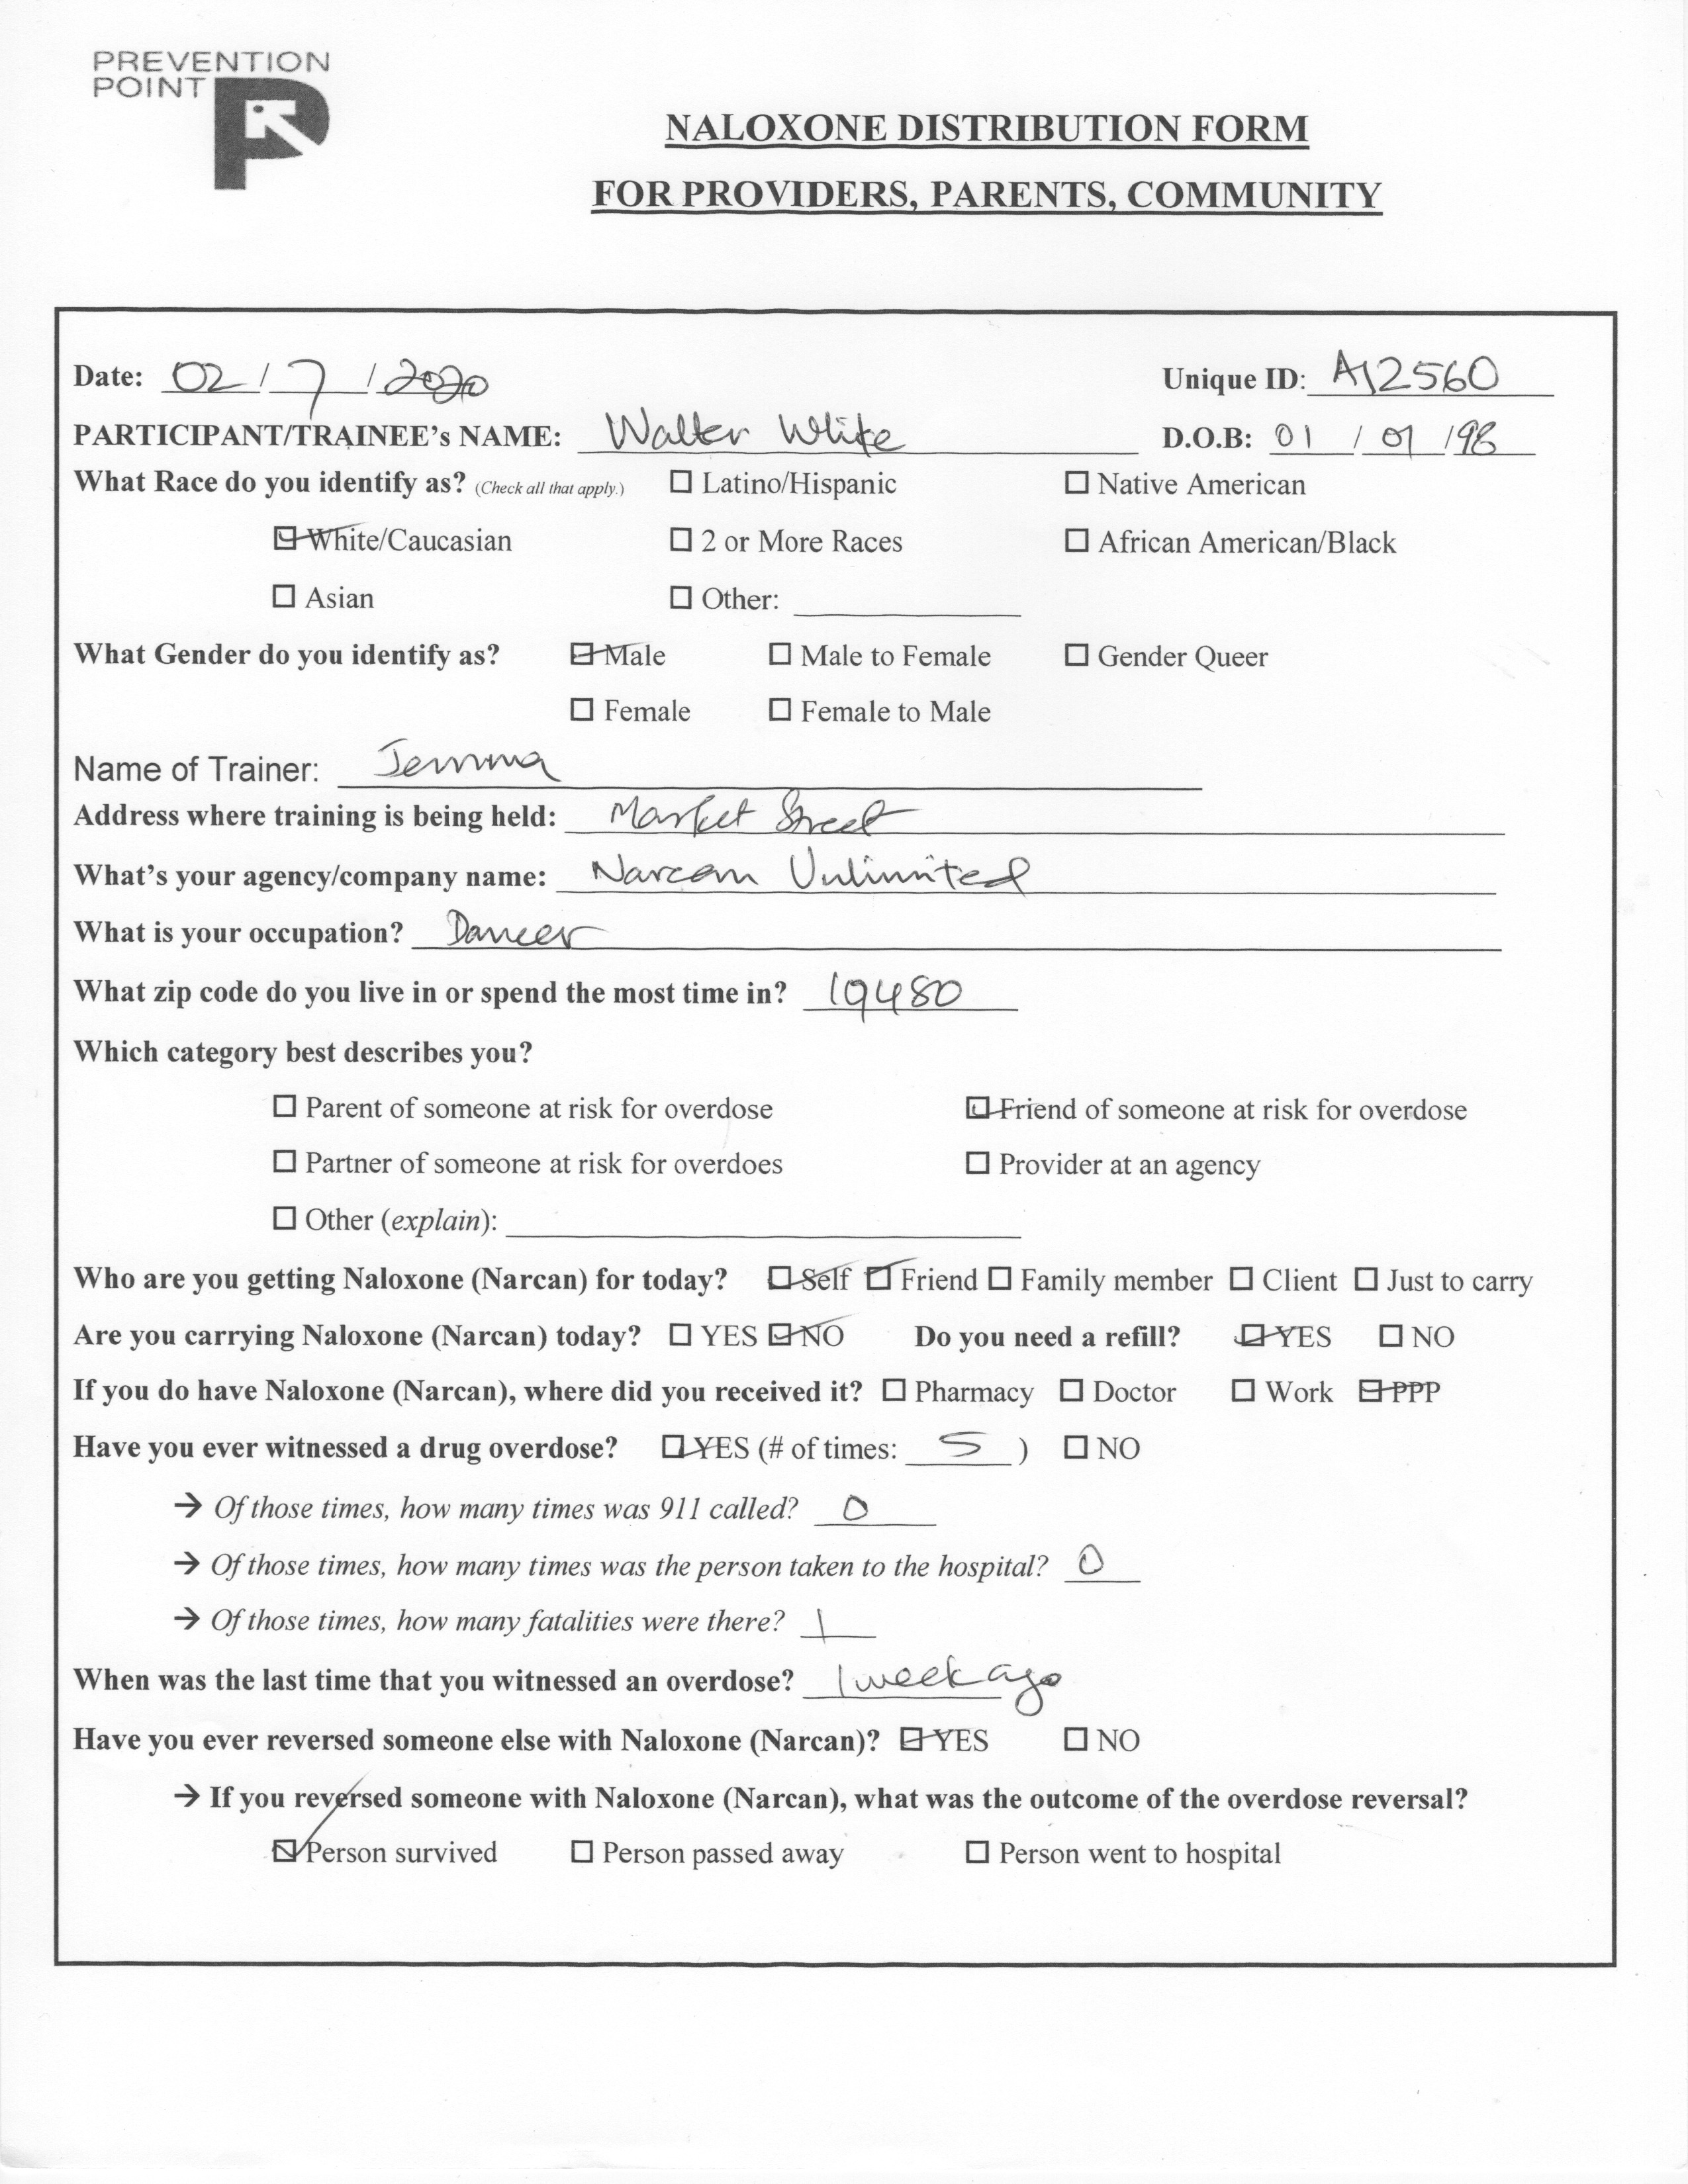 PREVENTION
POINT
NALOXONE DISTRIBUTION FORM
FOR PROVIDERS, PARENTS, COMMUNITY
Date: 02 / 7 / 2020 Unique ID: A12560
PARTICIPANT/TRAINEE's NAME: Walter White D.O.B: 01 / 01 / 98
What Race do you identify as? (Check all that apply.) ☐ Latino/Hispanic ☐ Native American
☑ White/Caucasian ☐ 2 or More Races ☐ African American/Black
☐ Asian ☐ Other:
What Gender do you identify as? ☑ Male ☐ Male to Female ☐ Gender Queer
☐ Female ☐ Female to Male
Name of Trainer: Jemma
Address where training is being held: Market Street
What's your agency/company name: Narcan Unlimited
What is your occupation? Dancer
What zip code do you live in or spend the most time in? 19480
Which category best describes you?
☐ Parent of someone at risk for overdose ☑ Friend of someone at risk for overdose
☐ Partner of someone at risk for overdoes ☐ Provider at an agency
☐ Other (explain):
Who are you getting Naloxone (Narcan) for today? ☑ Self ☑ Friend ☐ Family member ☐ Client ☐ Just to carry
Are you carrying Naloxone (Narcan) today? ☐ YES ☑ NO Do you need a refill? ☑ YES ☐ NO
If you do have Naloxone (Narcan), where did you received it? ☐ Pharmacy ☐ Doctor ☐ Work ☑ PPP
Have you ever witnessed a drug overdose? ☑ YES (# of times: 5 ) ☐ NO
→ Of those times, how many times was 911 called? 0
→ Of those times, how many times was the person taken to the hospital? 0
→ Of those times, how many fatalities were there? 1
When was the last time that you witnessed an overdose? 1 week ago
Have you ever reversed someone else with Naloxone (Narcan)? ☑ YES ☐ NO
→ If you reversed someone with Naloxone (Narcan), what was the outcome of the overdose reversal?
☑ Person survived ☐ Person passed away ☐ Person went to hospital